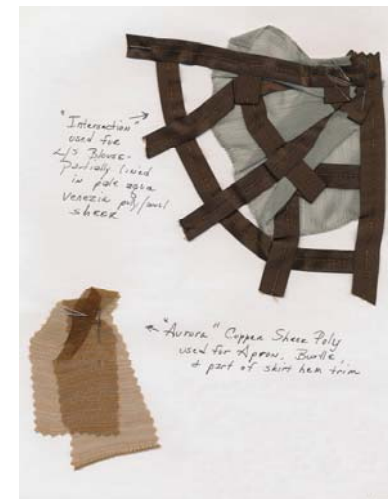 "Intersection"
used for
L/S Blouse-
partially lined
in pale aqua
Venezia poly/
sheer
"Aurora" Copper Sheer Poly
used for Apron, Bustle,
+ part of skirt hem trim